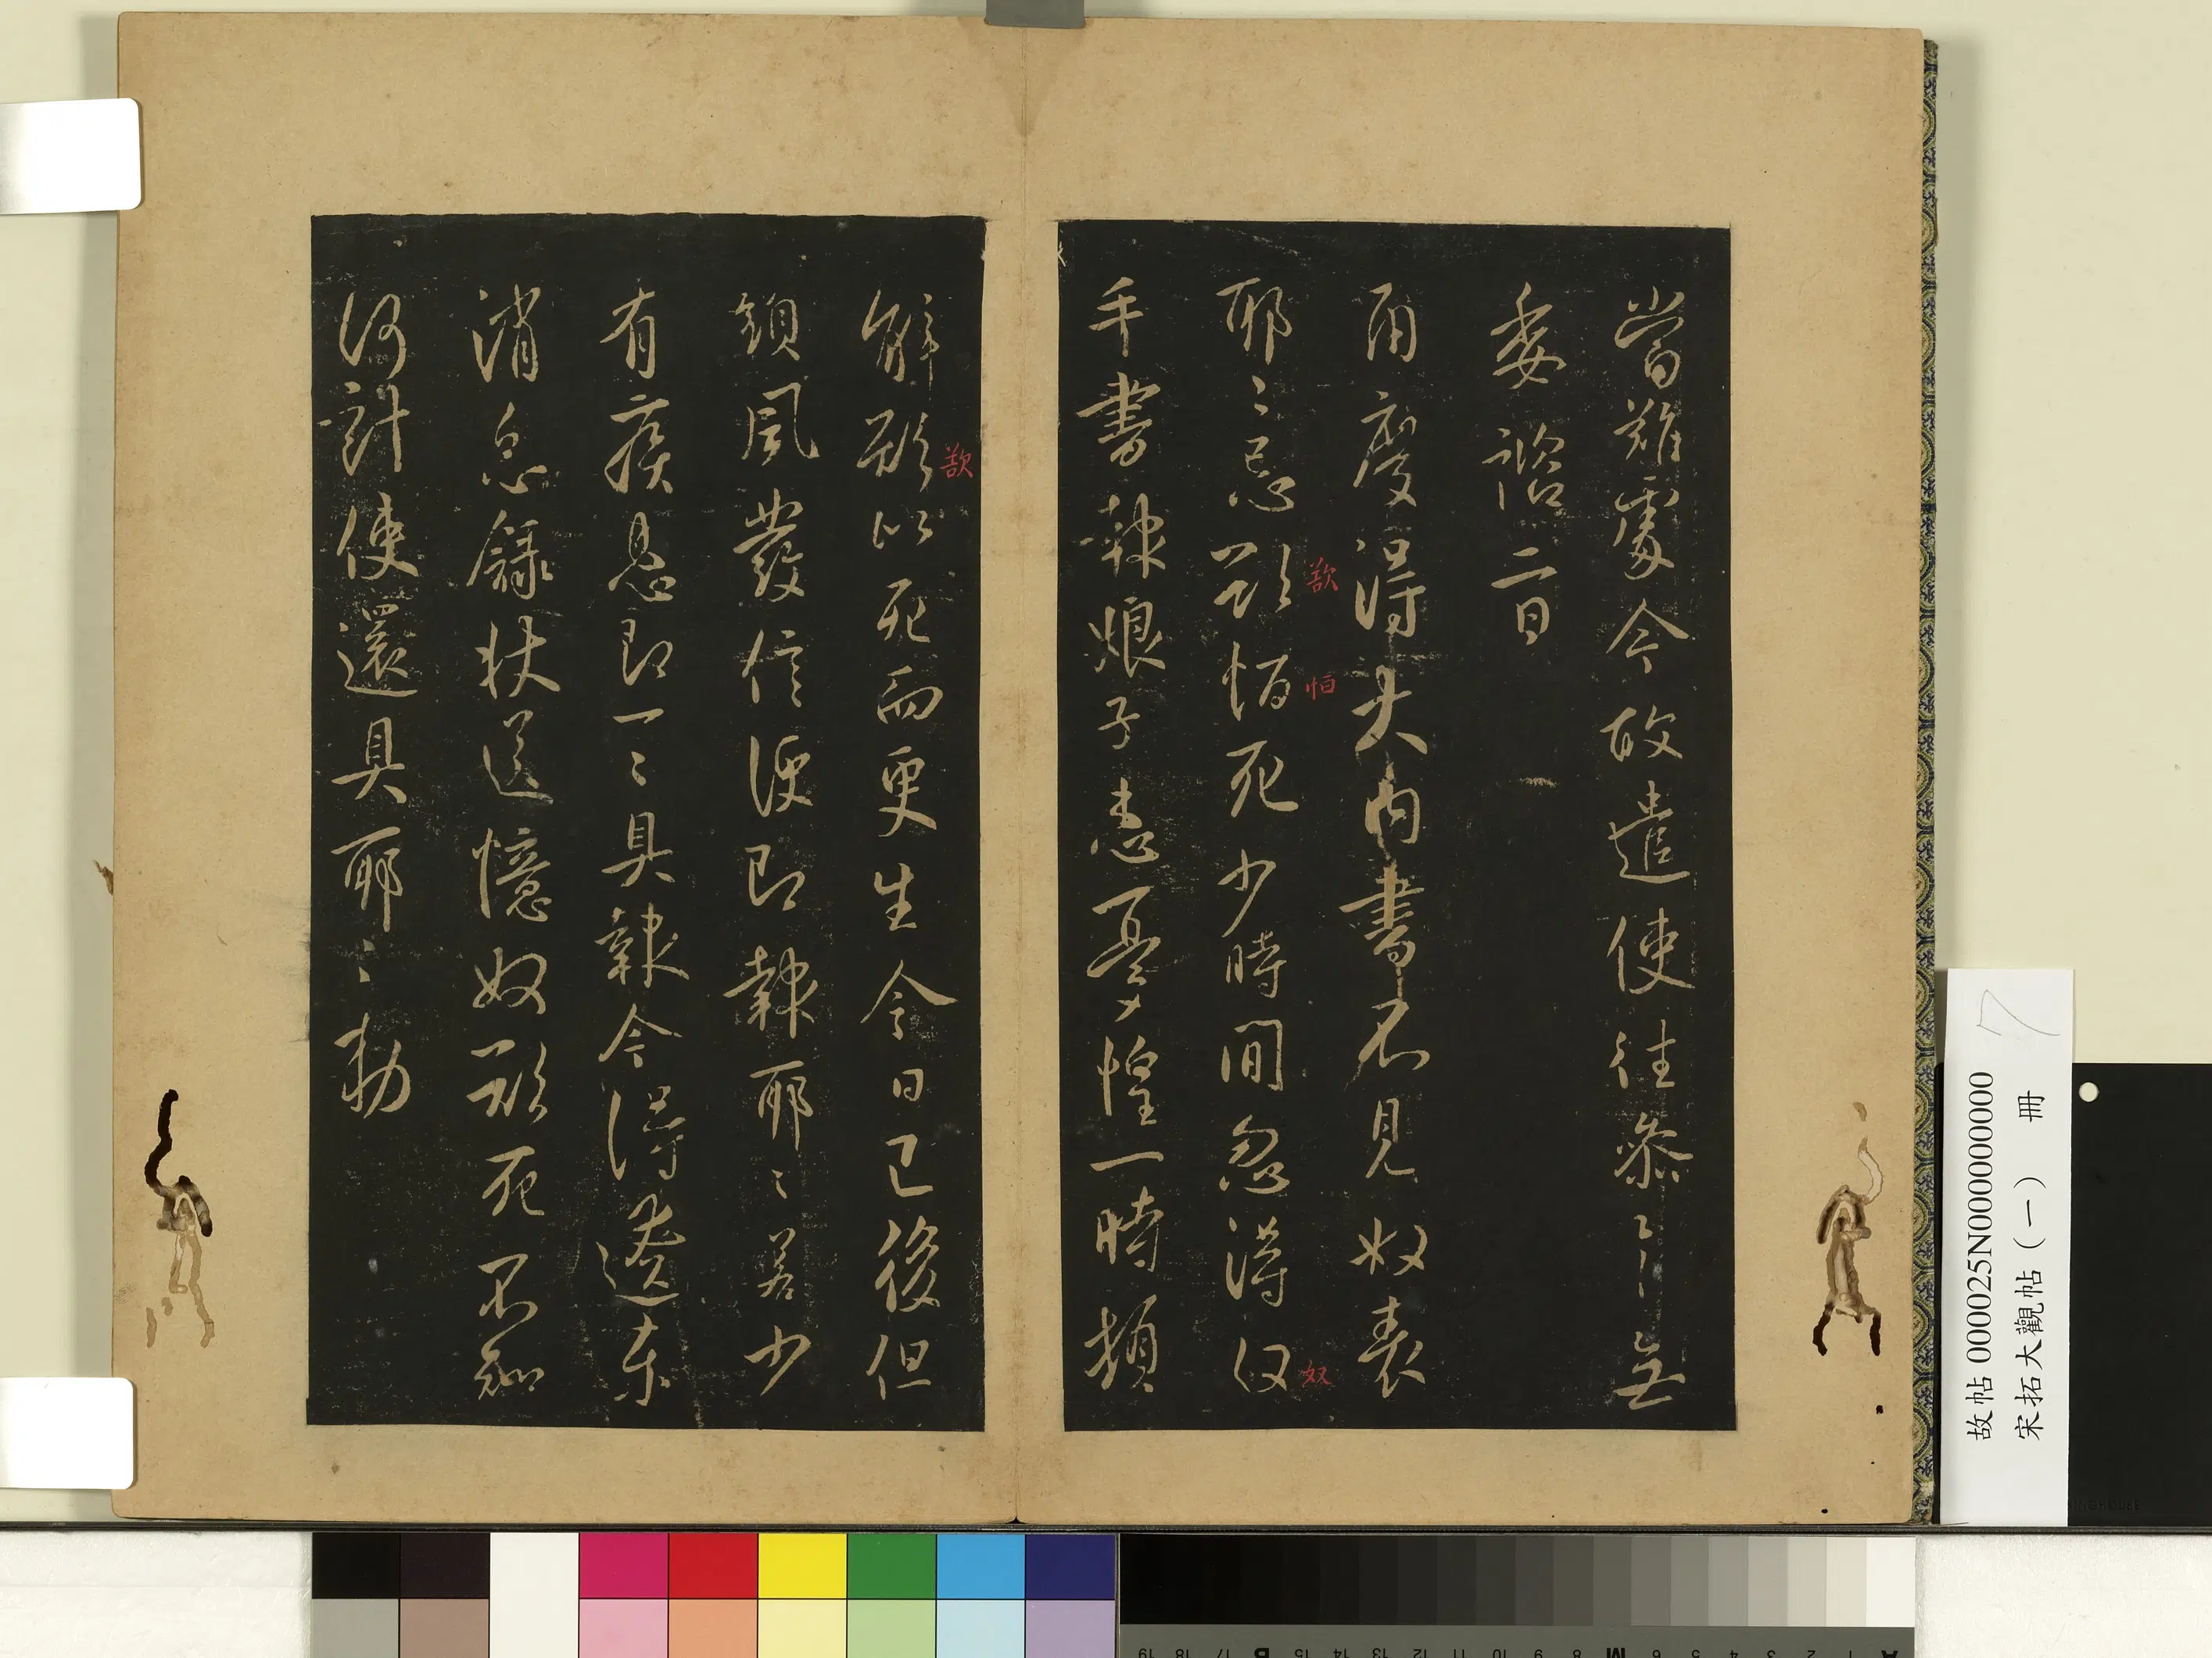 當難處今故遣使往參無
委諮二日
兩度得大內書不見奴表
耶々忌欲恒死少時間忽得奴
手書報娘子患憂惶一時頓
解欲以死而更生今日已後但
頭風發信便即報耶々若少
有疾患即一々具報今得遼東
消息錄狀送憶奴欲死不知
何計使還具耶々勅
奴
故帖 000025N000000000
宋拓大觀帖（一） 冊
7